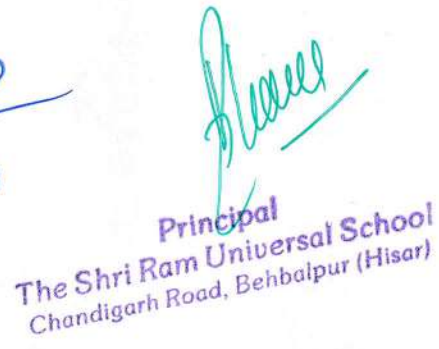 Principal
The Shri Ram Universal School
Chandigarh Road, Behbalpur (Hisar)